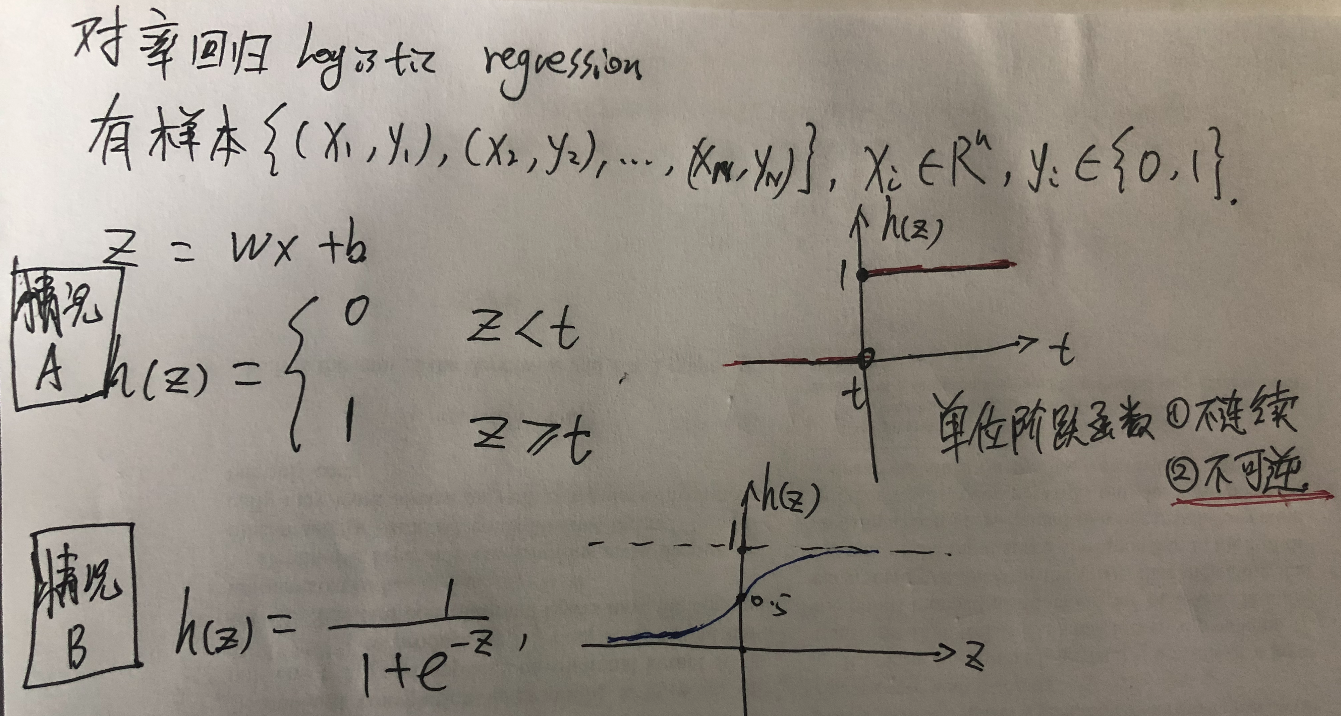 对率回归 Logistic regression
有样本{(x₁,y₁),(x₂,y₂),...,(x_N,y_N)}, x_i∈Rⁿ, y_i∈{0,1}.
z = wx+b
h(z)
1
t
t
情况
A
h(z) = { 0 z<t
1 z≥t
单位阶跃函数 ①不连续
②不可逆.
情况
B
h(z) = 1/(1+e^{-z}),
h(z)
1
0.5
z